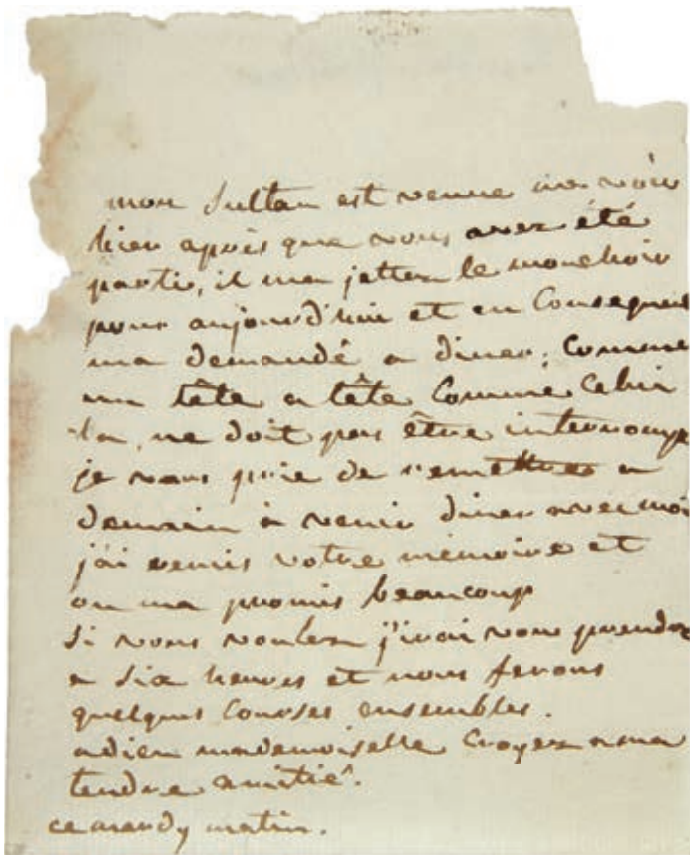 mon Sultan est venue me voir
hier après que vous avez été
partie, il ma jetter le mouchoir
pour aujourd'hui et en Consequence
ma demandé a diner; Comme
un tête a tête Comme Celui
la, ne doit pas être interrompu
je vous prie de remettre a
demain à venir diner avec moi
j'ai remis votre mémoire et
on ma promis beaucoup
si vous voulez j'irai vous prendre
a six heures et nous ferons
quelques Courses ensembles.
adieu mademoiselle croyez a ma
tendre amitié.
ce mardy matin.